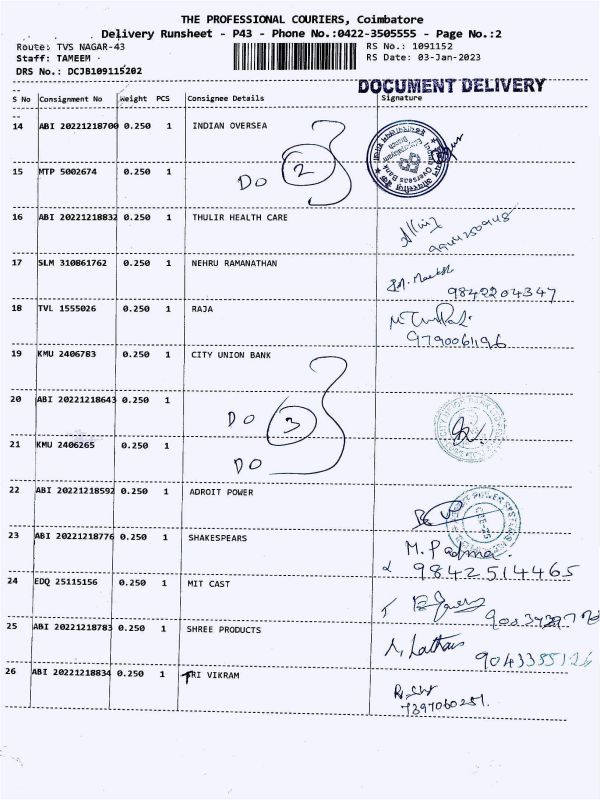 THE PROFESSIONAL COURIERS, Coimbatore
Delivery Runsheet - P43 - Phone No.:0422-3505555 - Page No.:2
Route: TVS NAGAR-43 RS No.: 1091152
Staff: TAMEEM RS Date: 03-Jan-2023
DRS No.: DCJB109115202
DOCUMENT DELIVERY
S No Consignment No Weight PCS Consignee Details Signature
14 ABI 20221218700 0.250 1 INDIAN OVERSEA
15 MTP 5002674 0.250 1 DO 2
16 ABI 20221218832 0.250 1 THULIR HEALTH CARE
17 SLM 310861762 0.250 1 NEHRU RAMANATHAN
9842204347
18 TVL 1555026 0.250 1 RAJA
9790061196
19 KMU 2406783 0.250 1 CITY UNION BANK
20 ABI 20221218643 0.250 1 DO 3
21 KMU 2406265 0.250 1 DO
22 ABI 20221218592 0.250 1 ADROIT POWER
23 ABI 20221218776 0.250 1 SHAKESPEARS M. Padma
9842514465
24 EDQ 25115156 0.250 1 MIT CAST
25 ABI 20221218783 0.250 1 SHREE PRODUCTS
26 ABI 20221218834 0.250 1 TRI VIKRAM
7397060251.